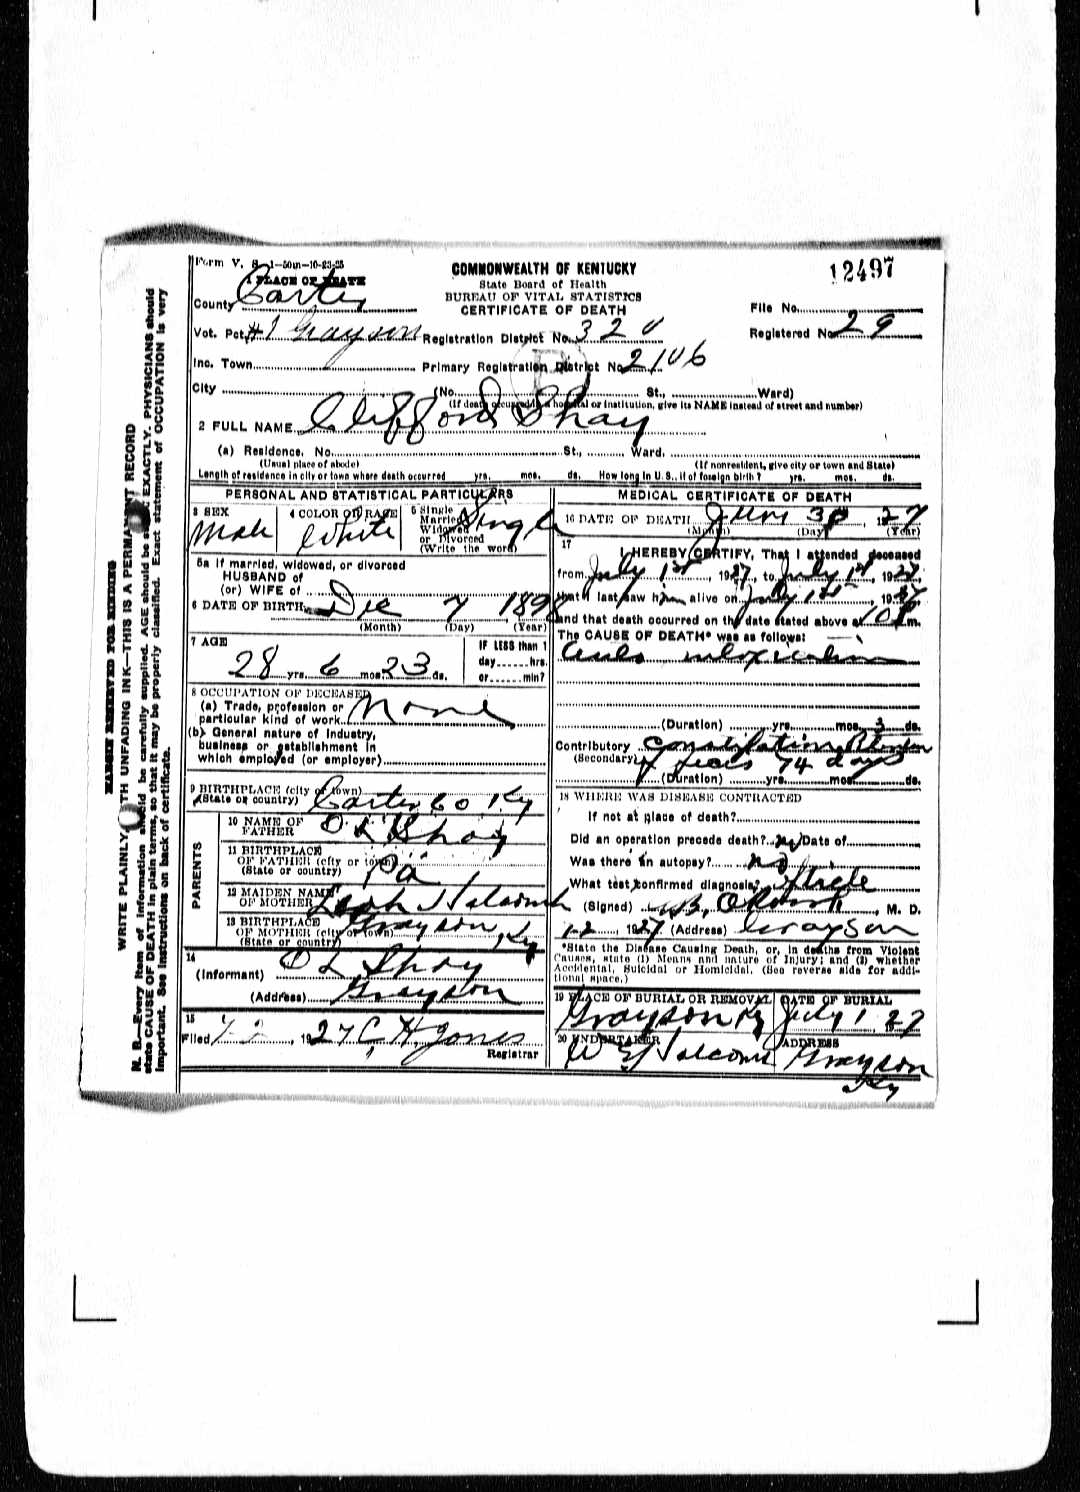 Form V. S. 1-50m-10-23-25
12497
COMMONWEALTH OF KENTUCKY
State Board of Health
BUREAU OF VITAL STATISTICS
CERTIFICATE OF DEATH
1 PLACE OF DEATH
County Carter
File No.
Vot. Pct. #1 Grayson Registration District No. 320
Registered No. 29
Inc. Town Primary Registration District No. 2106
City (No. St., Ward)
(If death occurred in a hospital or institution, give its NAME instead of street and number)
2 FULL NAME Clifford Shay
(a) Residence. No. St., Ward.
(Usual place of abode) (If nonresident, give city or town and State)
Length of residence in city or town where death occurred yrs. mos. ds. How long in U. S., if of foreign birth? yrs. mos. ds.
PERSONAL AND STATISTICAL PARTICULARS
3 SEX Male
4 COLOR OR RACE White
5 Single Married Widowed or Divorced (Write the word) Single
5a If married, widowed, or divorced
HUSBAND of
(or) WIFE of
6 DATE OF BIRTH Dec 7 1898
(Month) (Day) (Year)
7 AGE
28 yrs. 6 mos. 23 ds.
IF LESS than 1
day hrs.
or min?
8 OCCUPATION OF DECEASED
(a) Trade, profession or
particular kind of work None
(b) General nature of industry,
business or establishment in
which employed (or employer)
9 BIRTHPLACE (city or town)
(State or country) Carter Co Ky
PARENTS
10 NAME OF FATHER O L Shay
11 BIRTHPLACE
OF FATHER (city or town)
(State or country) Pa
12 MAIDEN NAME
OF MOTHER Leah Holcomb
13 BIRTHPLACE
OF MOTHER (city or town) Grayson, Ky
(State or country)
14
(Informant) O L Shay
(Address) Grayson
15
Filed 7-2, 1927 C H Jones
Registrar
MEDICAL CERTIFICATE OF DEATH
16 DATE OF DEATH June 30, 1927
(Month) (Day) (Year)
17
I HEREBY CERTIFY, That I attended deceased
from July 1st, 1927, to July 1st, 1927,
that I last saw him alive on July 1st, 1927
and that death occurred on the date stated above at 10 P m.
The CAUSE OF DEATH* was as follows:
intoxication
(Duration) yrs. mos. 3 ds.
Contributory Constipation
(Secondary) 74 days
(Duration) yrs. mos. ds.
18 WHERE WAS DISEASE CONTRACTED
If not at place of death?
Did an operation precede death? no Date of
Was there an autopsy? no
What test confirmed diagnosis?
(Signed) , M. D.
1927 (Address) Grayson
*State the Disease Causing Death, or, in deaths from Violent
Causes, state (1) Means and nature of Injury; and (2) whether
Accidental, Suicidal or Homicidal. (See reverse side for addi-
tional space.)
19 PLACE OF BURIAL OR REMOVAL Grayson Ky
DATE OF BURIAL July 1, 27
20 UNDERTAKER W E Holcomb
ADDRESS Grayson Ky
MARGIN RESERVED FOR BINDING
WRITE PLAINLY WITH UNFADING INK—THIS IS A PERMANENT RECORD
N. B.—Every item of information should be carefully supplied. AGE should be stated EXACTLY. PHYSICIANS should
state CAUSE OF DEATH in plain terms, so that it may be properly classified. Exact statement of OCCUPATION is very
important. See instructions on back of certificate.